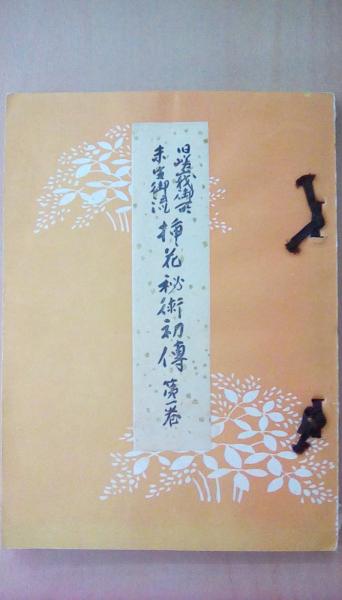 旧嵯峨御所
未生御流
挿花秘術初傳 第一巻